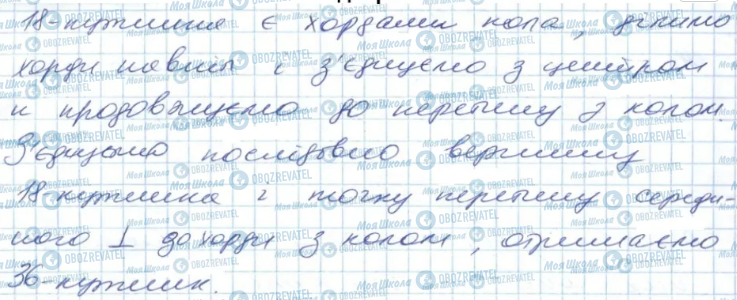 18-кутника є хордами кола, ділимо
хорди навпіл і з'єднуємо з центром
и продовжуємо до перетину з колом.
З'єднуємо послідовно вершину
18-кутника і точку перетину середин-
ного ⊥ до хорди з колом, отримаємо
36-кутник.